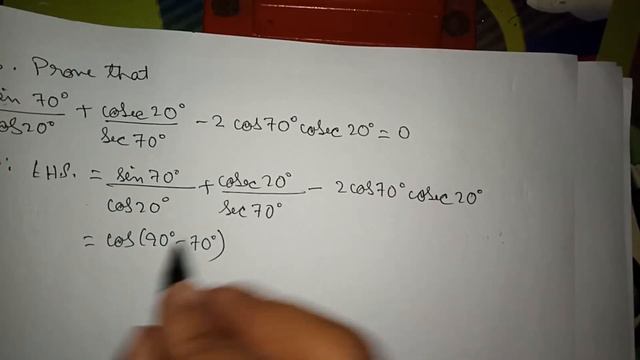 . Prove that
sin 70° / cos20° + cosec 20° / sec 70° - 2 cos70° cosec 20° = 0
: LHS. = sin 70° / cos 20° + cosec 20° / sec 70° - 2 cos 70° cosec 20°
= cos (90° - 70°)